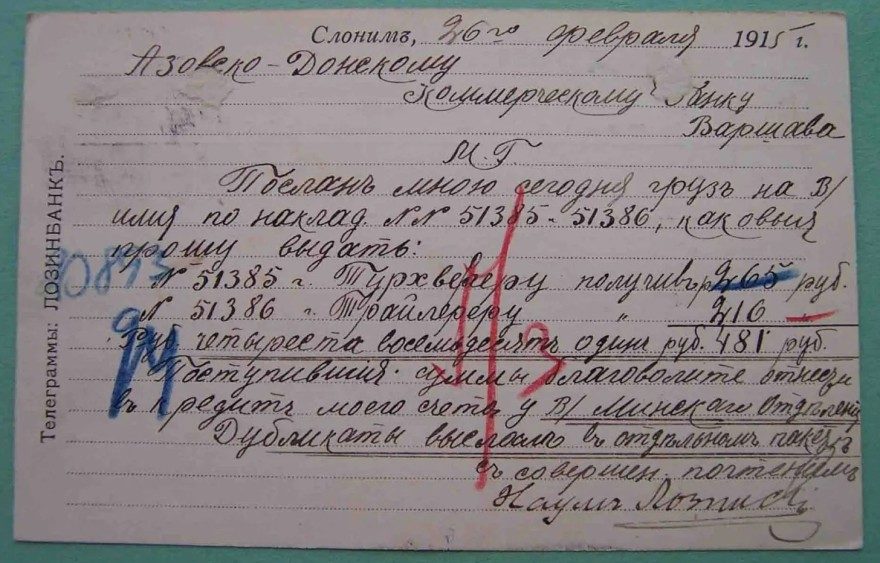 Слонимъ, 26го февраля 1915 г.
Азовско-Донскому
Коммерческому Банку
Варшава
М. Г.
Посланъ мною сегодня грузъ на В/
имя по наклад. NN 51385-51386, каковыя
прошу выдать:
N 51385 г. Турхвеберу получивъ р 265 руб.
N 51386 г. Трайлереру " 216 "
Руб. четыреста восемьдесятъ одинъ руб. 481 руб.
Поступившія суммы благоволите отнести
въ кредитъ моего счета у В/ Минскаго Отдѣленія
Дубликаты высланы въ отдѣльномъ пакетѣ
съ совершен. почтеніемъ
Наумъ
Телеграммы: ЛОЗИНБАНКЪ.